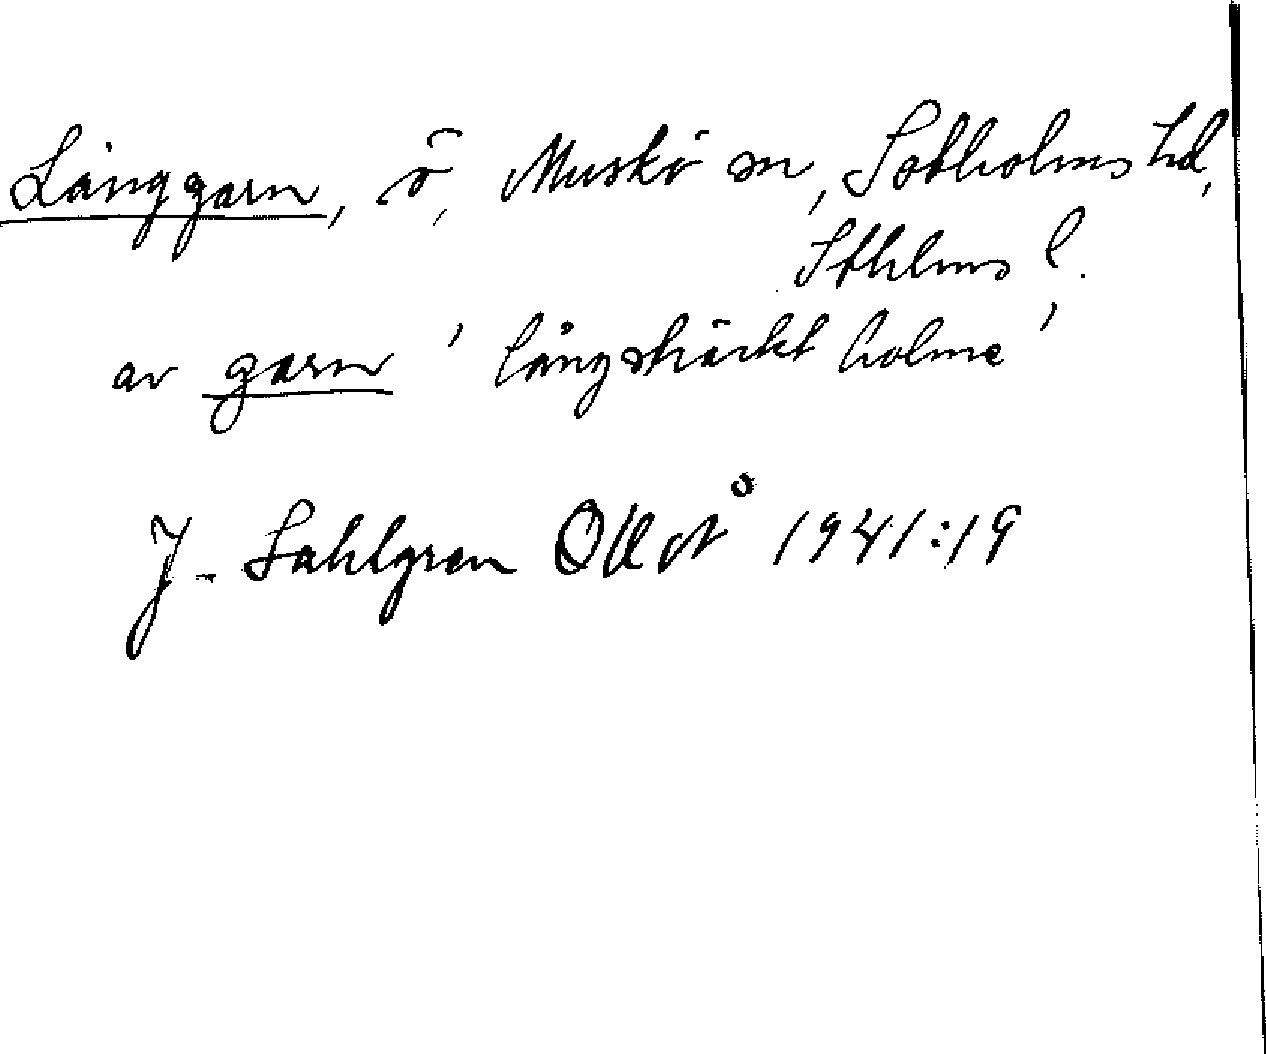 Långgarn, ö, Muskö sn, Sotholms hd,
Sthlms l.
av garn 'långsträckt holme'
J. Sahlgren OUÅ 1941:19